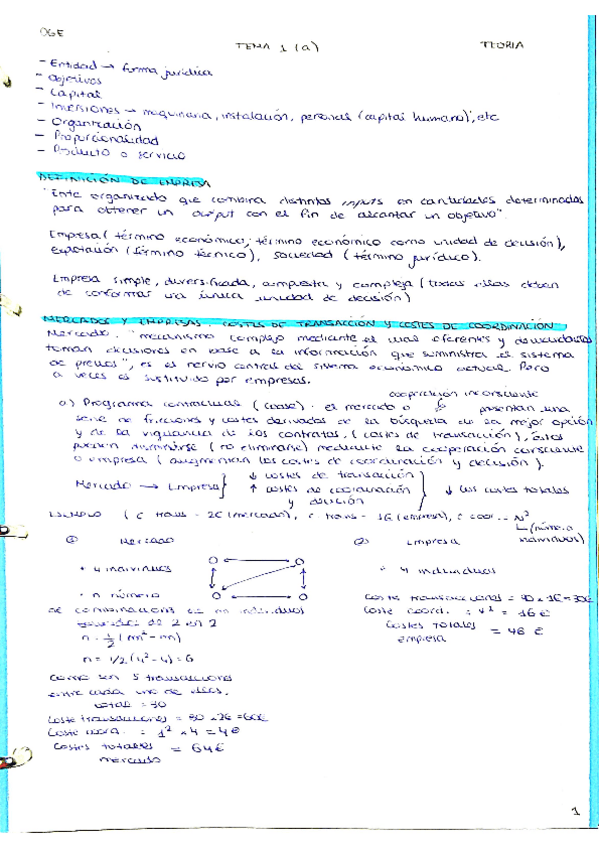 OGE
TEMA 1 (a)
TEORIA
- Entidad → forma jurídica
- Objetivos
- Capital
- Inversiones → maquinaria, instalación, personal (capital humano), etc
- Organización
- Proporcionalidad
- Producto o servicio
DEFINICIÓN DE EMPRESA
"Ente organizado que combina distintos inputs en cantidades determinadas
para obtener un output con el fin de alcanzar un objetivo".
Empresa (término económico, término económico como unidad de decisión),
explotación (término técnico), sociedad (término jurídico).
Empresa simple, diversificada, compuesta y compleja (todas ellas deben
de conformar una única unidad de decisión)
MERCADOS Y EMPRESAS. COSTES DE TRANSACCIÓN Y COSTES DE COORDINACIÓN
Mercado: "mecanismo complejo mediante el cual oferentes y demandantes
toman decisiones en base a la información que suministra el sistema
de precios", es el nervio central del sistema económico actual. Pero
a veces es sustituido por empresas.
cooperación inconsciente
a) Programa contractual (Coase): el mercado o presentan una
serie de fricciones y costes derivados de la búsqueda de la mejor opción
y de la vigilancia de los contratos, (costes de transacción), estos
pueden disminuirse (no eliminarse) mediante la cooperación consciente
o empresa (aumentan los costes de coordinación y decisión).
Mercado → Empresa } ↓ costes de transacción
↑ costes de coordinación y decisión } ↓ los costes totales
EJEMPLO (c trans = 2€ (mercado), c trans = 1€ (empresa), c coor = N²
(número individuos)
① Mercado
② Empresa
* 4 individuos
* 4 individuos
* n número
de combinaciones de m individuos
de 2 en 2
n = ½ (m² - m)
n = 1/2 (4² - 4) = 6
Como son 5 transacciones
entre cada uno de ellos,
total = 30
Coste transacciones = 30 x 2€ = 60€
Coste coord. = 1² x 4 = 4€
Costes totales mercado = 64€
Coste transacciones = 30 x 1€ = 30€
Coste coord. = 4² = 16€
Costes totales empresa = 46 €
1